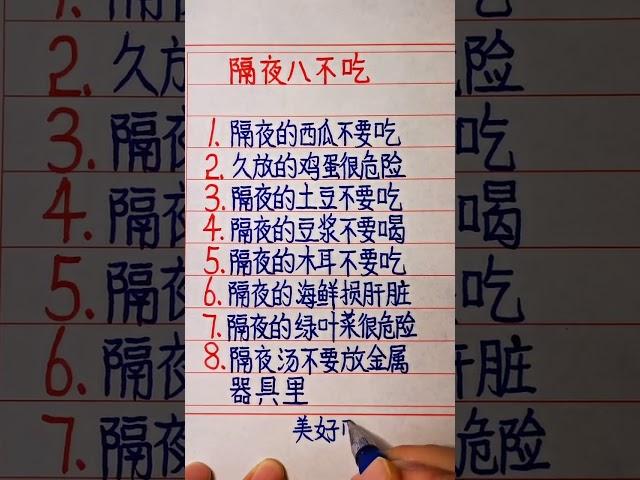 隔夜八不吃
1. 隔夜的西瓜不要吃
2. 久放的鸡蛋很危险
3. 隔夜的土豆不要吃
4. 隔夜的豆浆不要喝
5. 隔夜的木耳不要吃
6. 隔夜的海鲜损肝脏
7. 隔夜的绿叶菜很危险
8. 隔夜汤不要放金属
器具里
美好